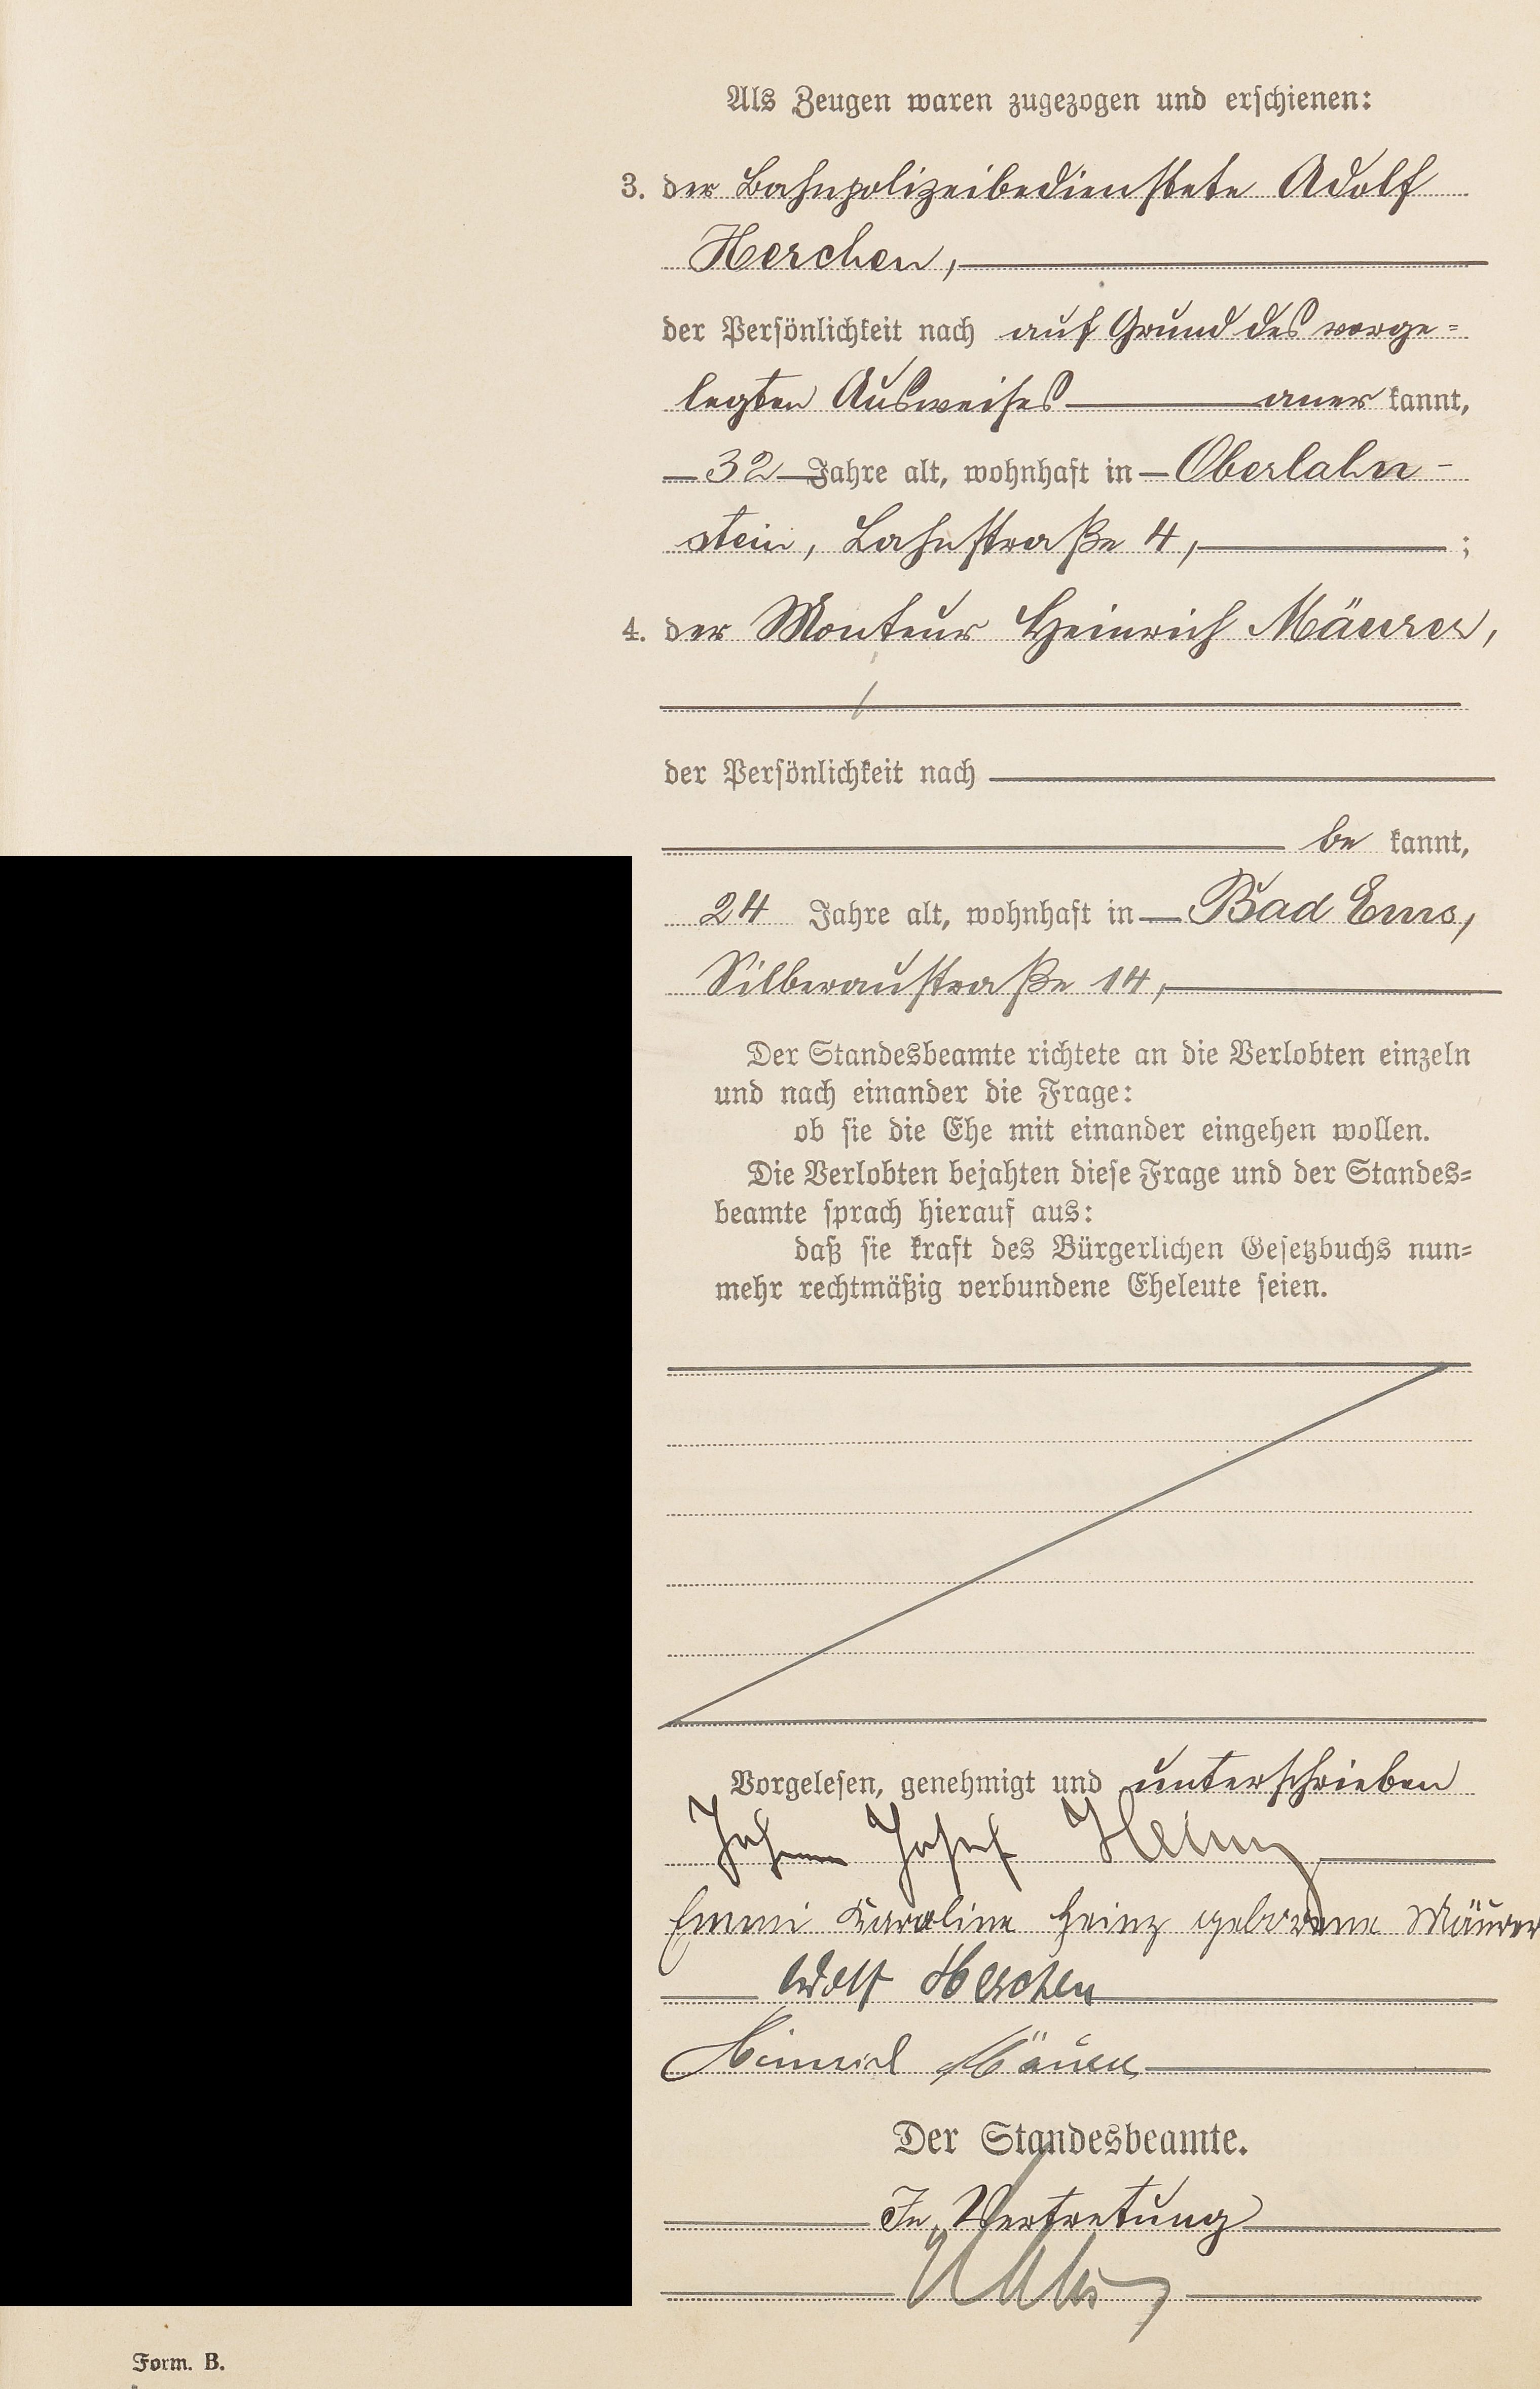 Als Zeugen waren zugezogen und erschienen:
3. der Bahnpolizeibedienstete Adolf
Herchen,
der Persönlichkeit nach auf Grund des vorge=
legten Ausweises aner kannt,
32 Jahre alt, wohnhaft in Oberlahn-
stein, Lahnstraße 4, ;
4. der Monteur Heinrich Mäurer,
der Persönlichkeit nach
be kannt,
24 Jahre alt, wohnhaft in Bad Ems,
Silberaustraße 14,
Der Standesbeamte richtete an die Verlobten einzeln
und nach einander die Frage:
ob sie die Ehe mit einander eingehen wollen.
Die Verlobten bejahten diese Frage und der Standes=
beamte sprach hierauf aus:
daß sie kraft des Bürgerlichen Gesetzbuchs nun=
mehr rechtmäßig verbundene Eheleute seien.
Vorgelesen, genehmigt und unterschrieben
Johann Josef Heinz
Emmi Karoline Heinz geborene Mäurer
Adolf Herchen
Heinrich Mäurer
Der Standesbeamte.
In Vertretung
Form. B.